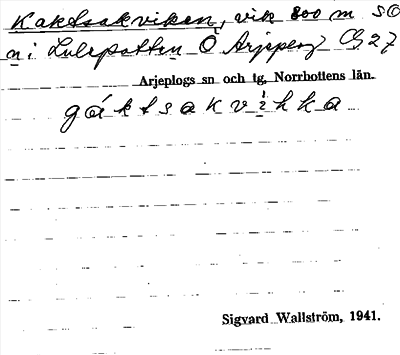 Kaktsakviken, vik 800 m SO
n i Luleputten Ö Arjeplog CG 27
Arjeplogs sn och tg, Norrbottens län.
gáktsakvìkka
Sigvard Wallström, 1941.